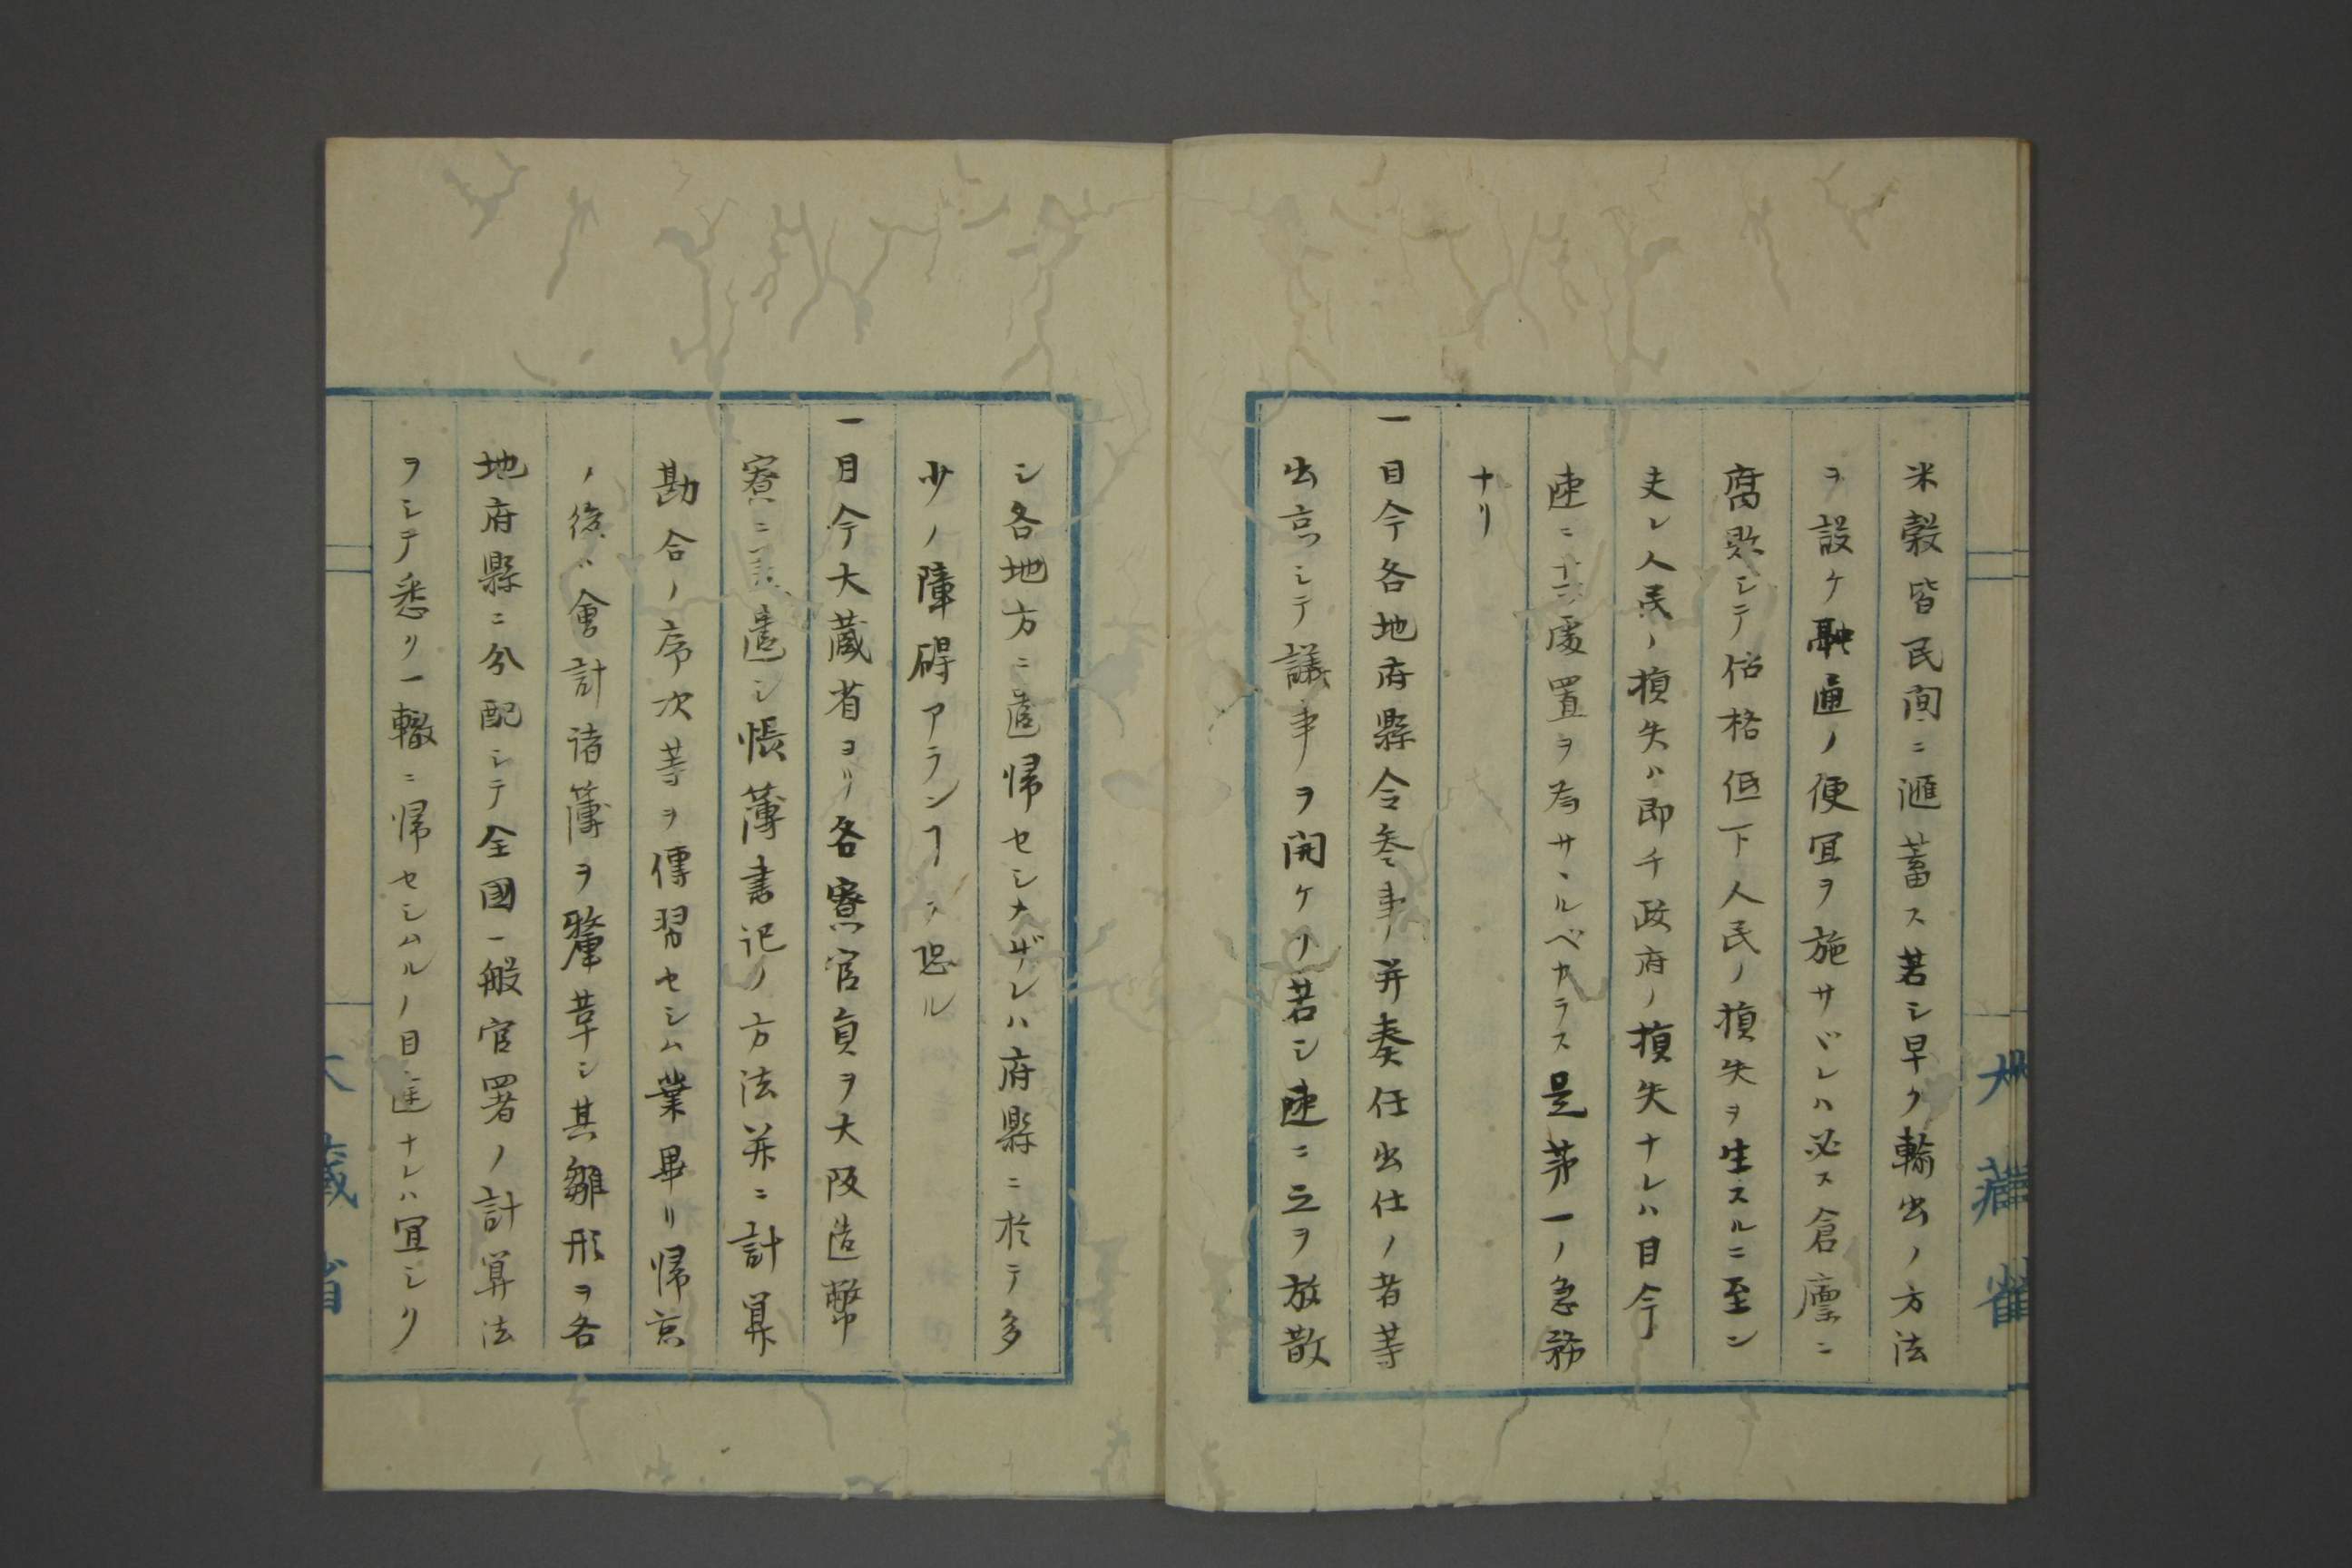 米穀皆民間ニ滙蓄ス若シ早ク輸出ノ方法
ヲ設ケ融通ノ便宜ヲ施サヾレハ必ス倉廩ニ
腐敗シテ俗格低下人民ノ損失ヲ生スルニ至ン
夫レ人民ノ損失ハ即チ政府ノ損失ナレハ目今
速ニ処置ヲ為サヽルベカラス是茅一ノ急務
ナリ
一目今各地府縣令参事并奏任出仕ノ者等
出京シテ議事ヲ開ケリ若シ速ニ之ヲ放散
シ各地方ニ還帰セシメザレハ府縣ニ於テ多
少ノ障碍アランヿヲ恐ル
一目今大蔵省ヨリ各寮官員ヲ大阪造幣
寮ニ遣シ帳簿書記ノ方法并ニ計算
勘合ノ序次等ヲ傳習セシム業畢リ帰京
ノ後ハ會計諸簿ヲ釐革シ其雛形ヲ各
地府縣ニ分配シテ全國一般官署ノ計算法
ヲシテ悉ク一轍ニ帰セシムルノ目途ナレハ宜シク
大藏省
大藏省